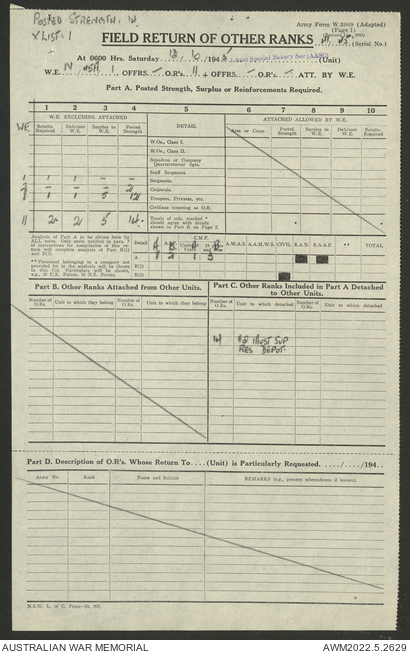 POSTED STRENGTH: 14.
X LIST: 1
Army Form W.3009 (Adapted)
(Page 1)
FIELD RETURN OF OTHER RANKS
(Serial No.)
At 0600 Hrs. Saturday 16/6/194 Aust Special Bakery Sec (AASC) (Unit)
W.E. OFFRS. — O.R's. 11 + OFFRS. — O.R's. — ATT. BY W.E.
Part A. Posted Strength, Surplus or Reinforcements Required.
1 2 3 4 5 6 7 8 9 10
W.E. EXCLUDING ATTACHED
DETAIL
ATTACHED ALLOWED BY W.E.
WE
Reinfts. Required
Deficient W.E.
Surplus to W.E.
Posted Strength
Arm or Corps
Posted Strength
Surplus to W.E.
Deficient W.E.
Reinfts. Required
W.Os., Class I.
W.Os., Class II.
Squadron or Company Quartermaster Sgts.
Staff Sergeants
1 1 1 — — Sergeants.
2 — — — 2 Corporals.
1 1 5 12 Troopers, Privates, etc.
Civilians counting as O.R.
11 2 2 5 14. Totals of cols. marked * should agree with details shown in Part E on Page 2.
Analysis of Part A to be shown here by ALL units.
Detail
C.M.F.
A.W.A.S. A.A.M.W.S. CIVIL R.A.N. R.A.A.F. ** ** TOTAL
A
B(i)
B(ii)
** Personnel belonging to a category not provided for in the analysis will be shown in this Col. Particulars will be shown, e.g., 10 U.K. Forces, 20 N.Z. Forces.
Part B. Other Ranks Attached from Other Units.
Part C. Other Ranks Included in Part A Detached to Other Units.
Number of O.Rs.
Unit to which they belong
Number of O.Rs.
Unit to which they belong
Number of O.Rs.
Unit to which detached
Number of O.Rs.
Unit to which detached
14 #2 AUST SUP
RES DEPOT.
Part D. Description of O.R's. Whose Return To....(Unit) is Particularly Requested. ..../..../194..
Army No.
Rank
Name and Initials
REMARKS (e.g., present whereabouts if known).
AUSTRALIAN WAR MEMORIAL
AWM2022.5.2629